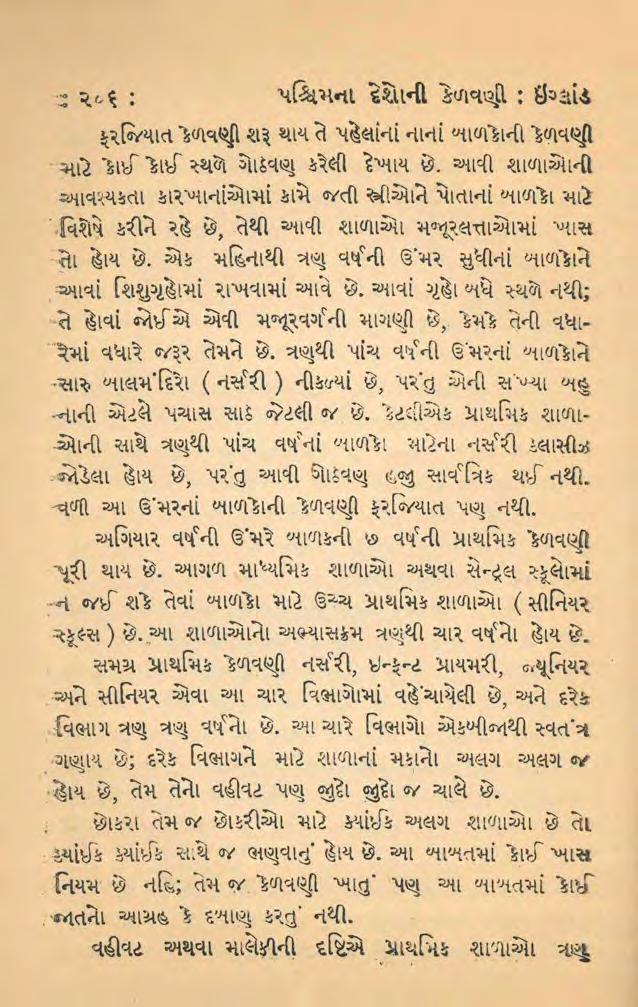 : ૨૦૬ : પશ્ચિમના દેશોની કેળવણી : ઇંગ્લાંડ
ફરજિયાત કેળવણી શરૂ થાય તે પહેલાંનાં નાનાં બાળકોની કેળવણી
માટે કોઈ કોઈ સ્થળે ગોઠવણ કરેલી દેખાય છે. આવી શાળાઓની
આવશ્યકતા કારખાનાંઓમાં કામે જતી સ્ત્રીઓને પોતાનાં બાળકો માટે
વિશેષે કરીને રહે છે, તેથી આવી શાળાઓ મજૂરલત્તાઓમાં ખાસ
તો હોય છે. એક મહિનાથી ત્રણ વર્ષની ઉંમર સુધીનાં બાળકોને
આવાં શિશુગૃહોમાં રાખવામાં આવે છે. આવાં ગૃહો બધે સ્થળે નથી;
તે હોવાં જોઈએ એવી મજૂરવર્ગની માગણી છે, કેમકે તેની વધા-
રેમાં વધારે જરૂર તેમને છે. ત્રણથી પાંચ વર્ષની ઉંમરનાં બાળકોને
સારુ બાલમંદિરો ( નર્સરી ) નીકળ્યાં છે, પરંતુ એની સંખ્યા બહુ
નાની એટલે પચાસ સાઠ જેટલી જ છે. કેટલીએક પ્રાથમિક શાળા-
ઓની સાથે ત્રણથી પાંચ વર્ષનાં બાળકો માટેના નર્સરી ક્લાસીઝ
જોડેલા હોય છે, પરંતુ આવી ગોઠવણ હજી સાર્વત્રિક થઈ નથી.
વળી આ ઉંમરનાં બાળકોની કેળવણી ફરજિયાત પણ નથી.
અગિયાર વર્ષની ઉંમરે બાળકની ૭ વર્ષની પ્રાથમિક કેળવણી
પૂરી થાય છે. આગળ માધ્યમિક શાળાઓ અથવા સેન્ટ્રલ સ્કૂલોમાં
ન જઈ શકે તેવાં બાળકો માટે ઉચ્ચ પ્રાથમિક શાળાઓ ( સીનિયર
સ્કૂલ્સ ) છે. આ શાળાઓનો અભ્યાસક્રમ ત્રણથી ચાર વર્ષનો હોય છે.
સમગ્ર પ્રાથમિક કેળવણી નર્સરી, ઇન્ફન્ટ પ્રાયમરી, જ્યૂનિયર
અને સીનિયર એવા આ ચાર વિભાગોમાં વહેંચાયેલી છે, અને દરેક
વિભાગ ત્રણ ત્રણ વર્ષનો છે. આ ચારે વિભાગો એકબીજાથી સ્વતંત્ર
ગણાય છે; દરેક વિભાગને માટે શાળાનાં મકાનો અલગ અલગ જ
હોય છે, તેમ તેનો વહીવટ પણ જુદો જુદો જ ચાલે છે.
છોકરા તેમ જ છોકરીઓ માટે ક્યાંઈક અલગ શાળાઓ છે તો
ક્યાંઈક ક્યાંઈક સાથે જ ભણવાનું હોય છે. આ બાબતમાં કોઈ ખાસ
નિયમ છે નહિ; તેમ જ કેળવણી ખાતું પણ આ બાબતમાં કોઈ
જાતનો આગ્રહ કે દબાણ કરતું નથી.
વહીવટ અથવા માલેકીની દૃષ્ટિએ પ્રાથમિક શાળાઓ ત્રણ